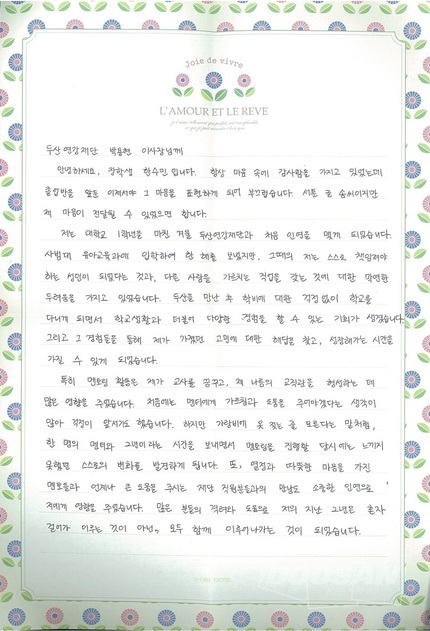 Joie de vivre
L'AMOUR ET LE REVE
두산연강재단 박용현 이사장님께
안녕하세요, 장학생 한수민입니다. 항상 마음 속에 감사함을 가지고 있었는데
졸업반을 앞둔 이제서야 그 마음을 표현하게 되어 부끄럽습니다. 서툰 글 솜씨이지만
제 마음이 전달될 수 있었으면 합니다.
저는 대학교 1학년을 마친 겨울 두산연강재단과 처음 인연을 맺게 되었습니다.
사범대 유아교육과에 입학하여 한 해를 보냈지만, 그때의 저는 스스로 책임져야
하는 성인이 되었다는 것과, 다른 사람을 가르치는 직업을 갖는 것에 대한 막연한
두려움을 가지고 있었습니다. 두산을 만난 후 학비에 대한 걱정없이 학교를
다니게 되면서 학교생활과 더불어 다양한 경험을 할 수 있는 기회가 생겼습니다.
그리고 그 경험들을 통해 제가 가졌던 고민에 대한 해답을 찾고, 성장해가는 시간을
가질 수 있게 되었습니다.
특히 멘토링 활동은 제가 교사를 꿈꾸고, 제 나름의 교직관을 형성하는 데
많은 영향을 주었습니다. 처음에는 멘티에게 가르침과 도움을 주어야겠다는 생각이
많아 걱정이 앞서기도 했습니다. 하지만 가랑비에 옷 젖는 줄 모른다는 말처럼,
한 명의 멘티와 2년이라는 시간을 보내면서 멘토링을 진행할 당시에는 느끼지
못했던 스스로의 변화를 발견하게 됩니다. 또, 열정과 따뜻한 마음을 가진
멘토들과 언제나 큰 도움을 주시는 재단 직원분들과의 만남도 소중한 인연으로
저에게 영향을 주었습니다. 많은 분들의 격려와 도움으로 저의 지난 2년은 혼자
걸어가 이루는 것이 아닌, 모두 함께 이루어나가는 것이 되었습니다.